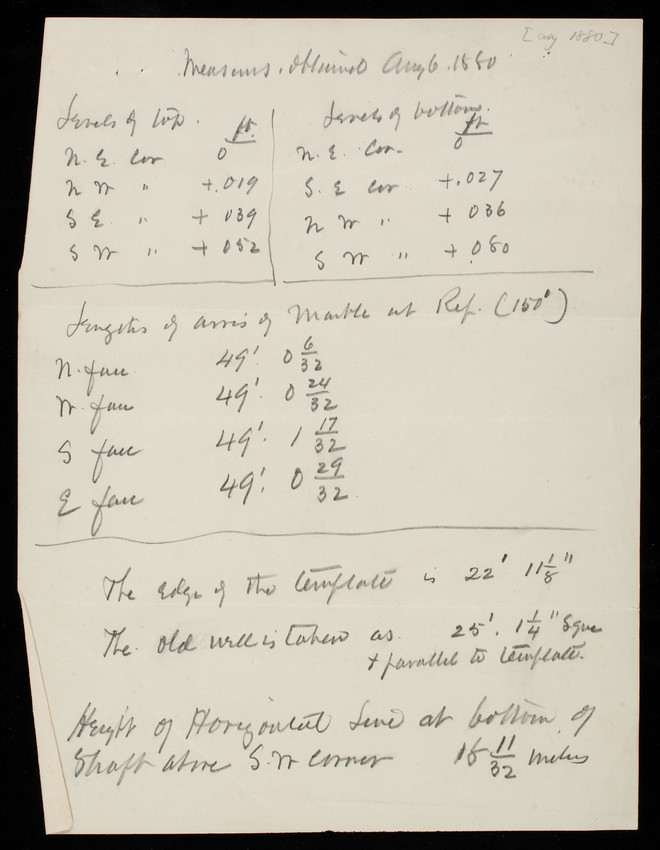 [Aug 1880]
Measures obtained Aug 6. 1880
Levels of top. ft.
N. E. Cor 0
N W " +.019
S E. " + 039
S W " + 052
Levels of bottom. ft.
N. E. Cor. 0
S. E Cor +.027
N W " + 036
S W " + 080
Lengths of arris of Marble at Ref. (150')
N. face 49'. 0 6/32
W. face 49'. 0 24/32
S face 49'. 1 17/32
E face 49'. 0 29/32
The edge of the template is 22' 11 1/8"
The old well is taken as 25'. 1 1/4" Sque
+ parallel to template.
Height of Horizontal Line at bottom of
Shaft above S. W corner 11/32 inches